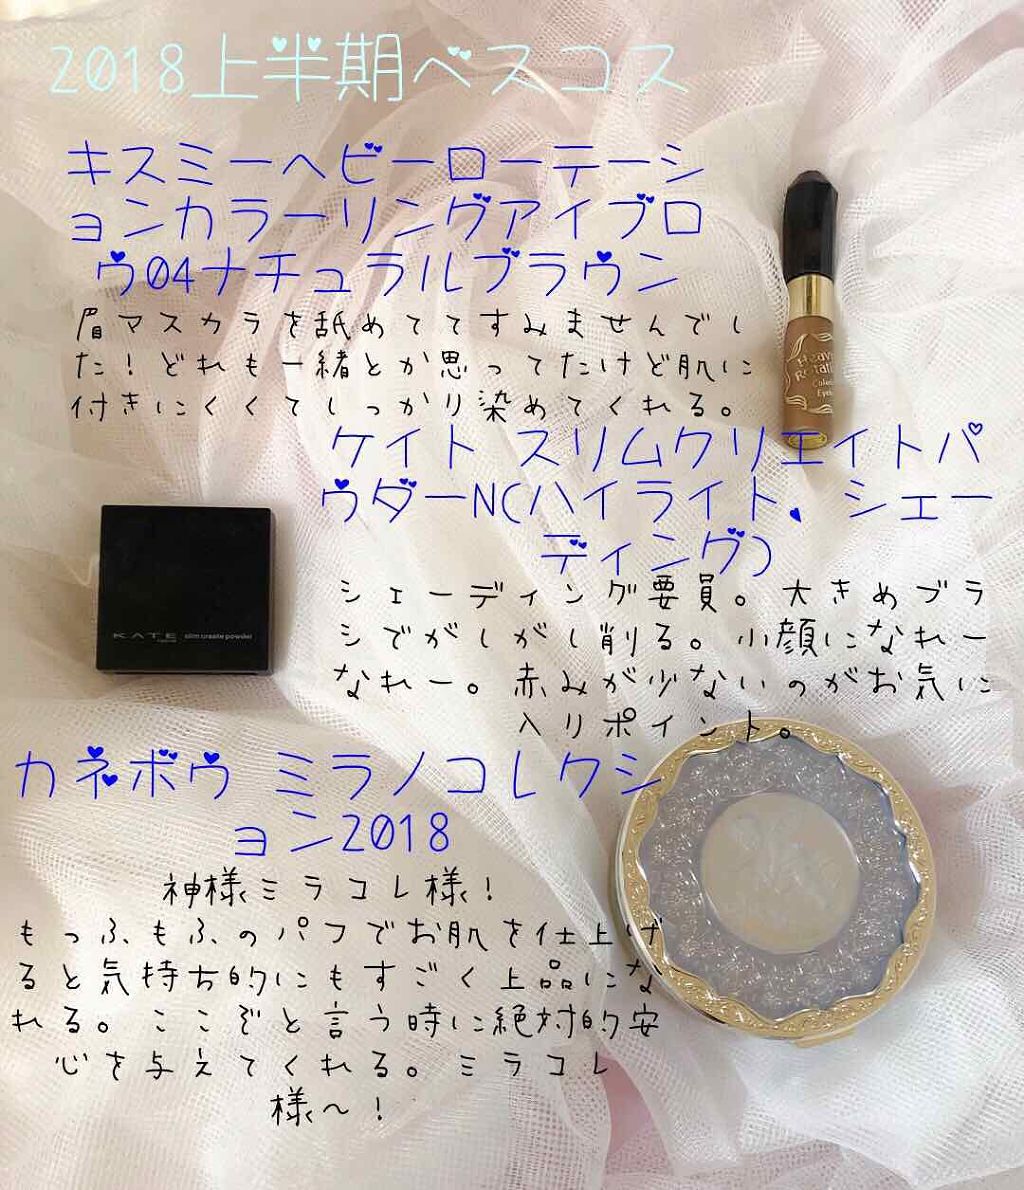 2018上半期ベスコス
キスミーヘビーローテーシ
ョンカラーリングアイブロ
ウ04ナチュラルブラウン
眉マスカラを舐めててすみませんでし
た！どれも一緒とか思ってたけど肌に
付きにくくてしっかり染めてくれる。
Heavy
Rotation
ケイト スリムクリエイトパ
ウダーN(ハイライト、シェー
ディング)
シェーディング要員。大きめブラ
シでがしがし削る。小顔になれー
なれー。赤みが少ないのがお気に
入りポイント。
KATE slim create powder
カネボウ ミラノコレクシ
ョン2018
神様ミラコレ様！
もっふもふのパフでお肌を仕上げ
ると気持ち的にもすごく上品にな
れる。ここぞと言う時に絶対的安
心を与えてくれる。ミラコレ
様〜！